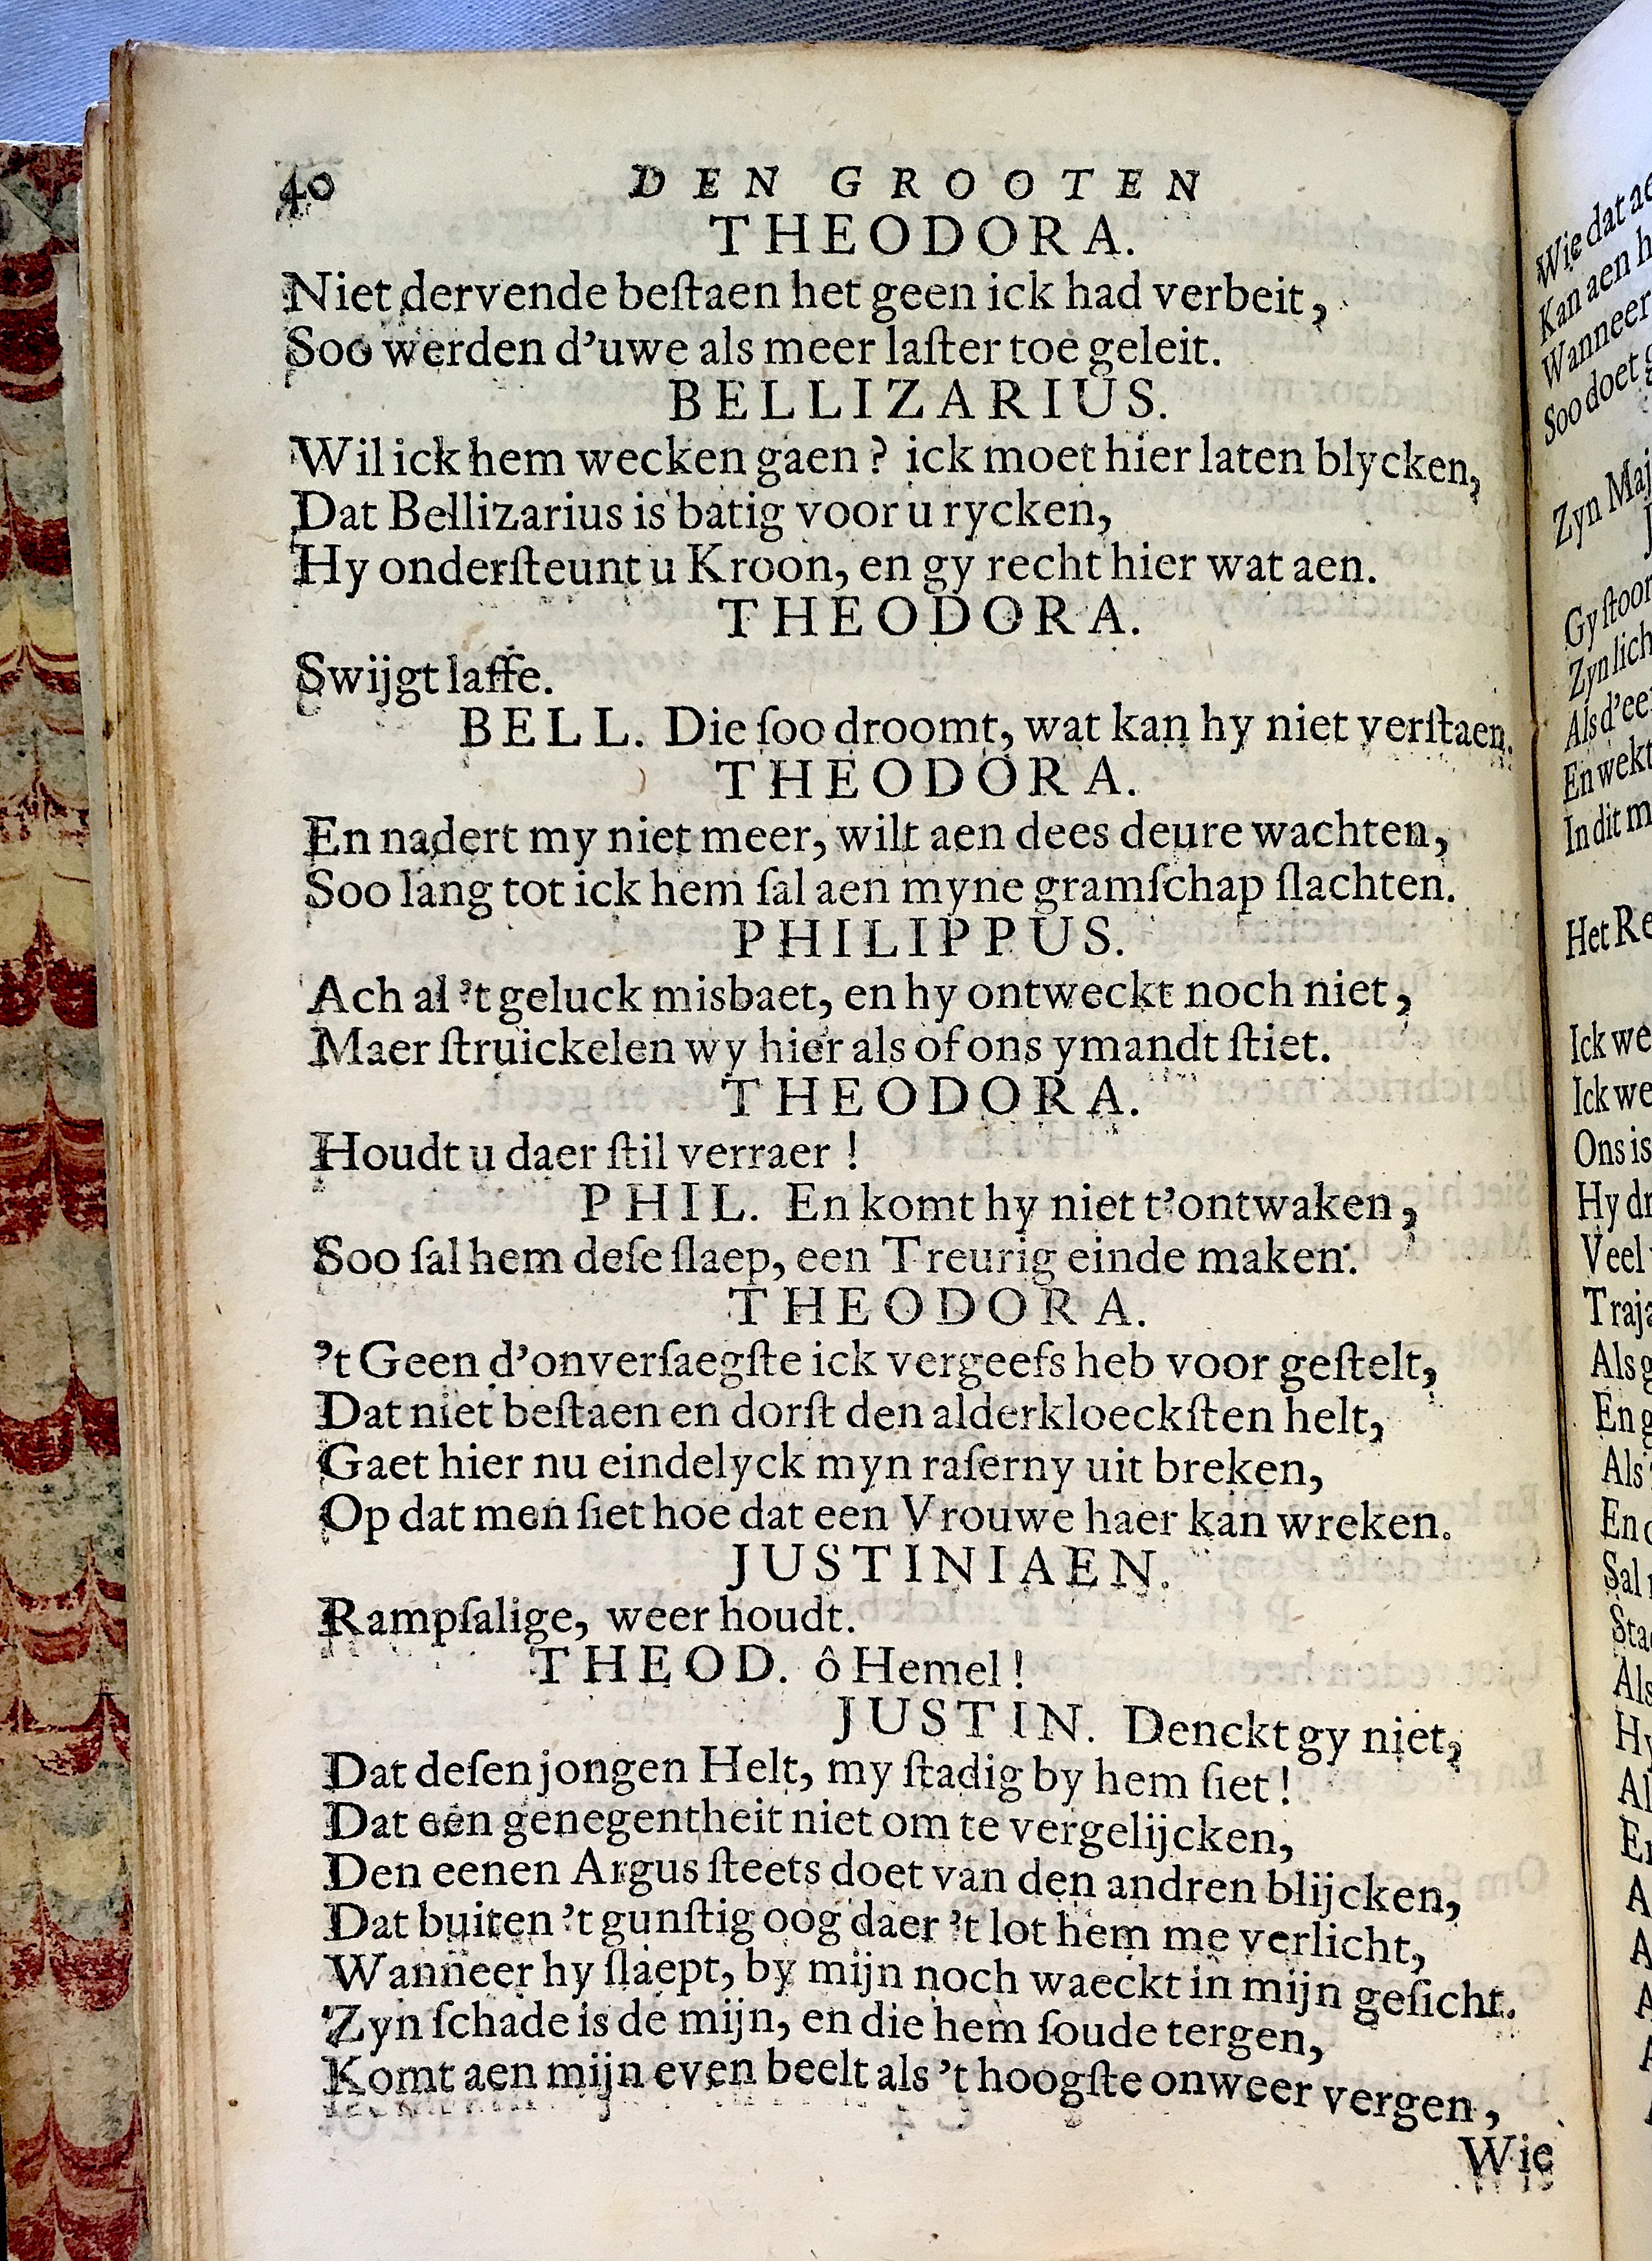 40 DEN GROOTEN
THEODORA.
Niet dervende beſtaen het geen ick had verbeit,
Soo werden d'uwe als meer laſter toe geleit.
BELLIZARIUS.
Wil ick hem wecken gaen? ick moet hier laten blycken,
Dat Bellizarius is batig voor u rycken,
Hy onderſteunt u Kroon, en gy recht hier wat aen.
THEODORA.
Swijgt laffe.
BELL. Die ſoo droomt, wat kan hy niet verſtaen.
THEODORA.
En nadert my niet meer, wilt aen dees deure wachten,
Soo lang tot ick hem ſal aen myne gramſchap ſlachten.
PHILIPPUS.
Ach al 't geluck misbaet, en hy ontweckt noch niet,
Maer ſtruickelen wy hier als of ons ymandt ſtiet.
THEODORA.
Houdt u daer ſtil verraer!
PHIL. En komt hy niet t'ontwaken,
Soo ſal hem deſe ſlaep, een Treurig einde maken.
THEODORA.
't Geen d'onverſaegſte ick vergeefs heb voor geſtelt,
Dat niet beſtaen en dorſt den alderkloeckſten helt,
Gaet hier nu eindelyck myn raſerny uit breken,
Op dat men ſiet hoe dat een Vrouwe haer kan wreken.
JUSTINIAEN.
Rampſalige, weer houdt.
THEOD. ô Hemel!
JUSTIN. Denckt gy niet,
Dat deſen jongen Helt, my ſtadig by hem ſiet!
Dat een genegentheit niet om te vergelijcken,
Den eenen Argus ſteets doet van den andren blijcken,
Dat buiten 't gunſtig oog daer 't lot hem me verlicht,
Wanneer hy ſlaept, by mijn noch waeckt in mijn geſicht.
Zyn ſchade is de mijn, en die hem ſoude tergen,
Komt aen mijn even beelt als 't hoogſte onweer vergen,
Wie
Wie dat
Kan aen
Wanneer
Soo doet
Zyn
Gy
Als d'
En wekt
In dit
Het
Ick
Ick
Ons is
Hy
Veel
Als
En
Als